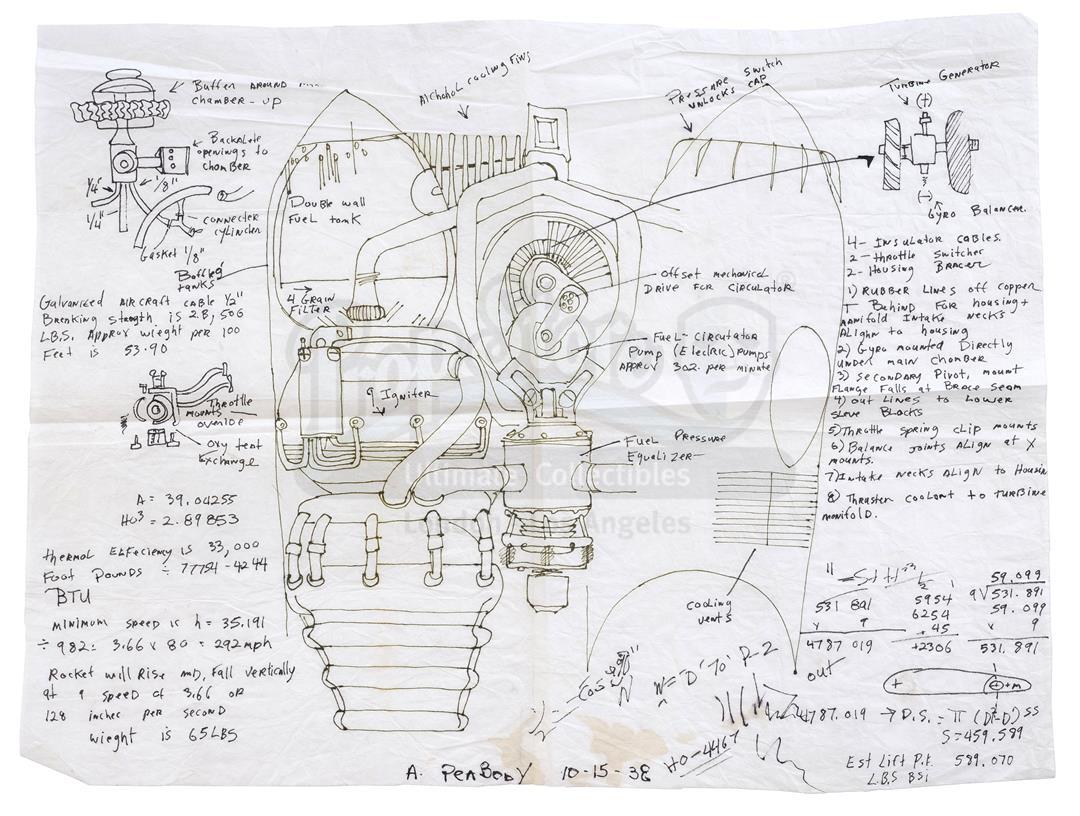 Buffer around
chamber - up
Backplate
openings to
chamber
1/4" 1/8"
1/4"
connecter
cylinder
Gasket 1/8"
Baffled
tanks
Galvanized aircraft cable 1/2"
Breaking strength is 28,506
LBS. Approx wieght per 100
Feet is 53.90
Throttle
mounts
overide
Oxy feat
Exchange
A = 39.04255
Ho³ = 2.89853
thermal Effeciency is 33,000
Foot Pounds ÷ 77754 - 4244
BTU
Minimum speed is h = 35.191
÷ 982 = 3.66 x 80 = 292mph
Rocket will Rise md, Fall vertically
at 9 speed of 3.66 or
128 inches per second
wieght is 65LBS
Alchohol cooling Fins
Double wall
Fuel tank
4 Grain
Filter
9 Igniter
Pressure switch
unlocks cap
Offset mechanical
Drive for circulator
Fuel - Circutator
Pump (Electric) Pumps
Approx 3oz. per minate
Fuel Pressure
Equalizer
cooling
vents
Turbine Generator
(+)
(-)
Gyro Balancer.
4 - Insulator Cables.
2 - Throttle Switcher
2 - Housing Bracer
1) Rubber lines off copper
T Behind For housing +
manifold Intake necks
Align to housing
2) Gyro mounted Directly
under main Chomber
3) Secondary Pivot, mount
Flange Falls at Brace Seam
4) Out Lines to Lower
sleve Blocks
5) Throttle spring clip mounts
6) Balance joints Align at X
mounts.
7) Intake necks Align to Housin
8) Thruster coolant to turbine
manifold.
531 891
x 9
4787 019
5954
6254
+45
+2306
59.099
9√531.891
59.099
x 9
531.891
W = D "To" R-2
out
+
+m
4787.019 → D.S. = π (D²-D) SS
S = 459.589
HO-4467
Est Lift P.F. 589.070
L.B.S BSi
A. PeaBody 10-15-38
Ultimate Collectibles
London Los Angeles
®